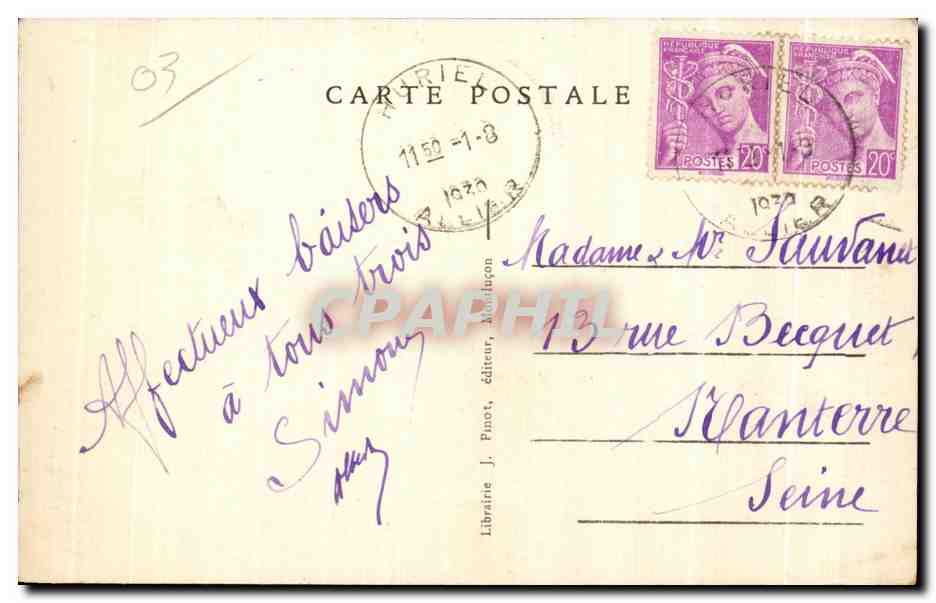 03
CARTE POSTALE
HURIEL
11 50 -1-8
1939
ALLIER
RÉPUBLIQUE FRANÇAISE
POSTES 20c
RÉPUBLIQUE FRANÇAISE
POSTES 20c
HURIEL
1-8
1939
ALLIER
Affectueux baisers
à tous trois
Simone
Albert
Librairie J. Pinot, éditeur, Montluçon
Madame & Mr Sauvanet
13 rue Becquet,
Nanterre
Seine
CPAPHIL